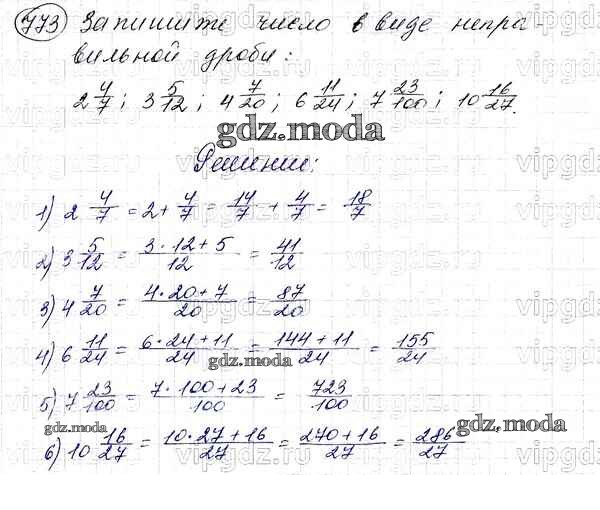 773 Запишите число в виде непра-
вильной дроби:
2 4/7; 3 5/12; 4 7/20; 6 11/24; 7 23/100; 10 16/27.
gdz.moda
Решение:
1) 2 4/7 = 2 + 4/7 = 14/7 + 4/7 = 18/7
2) 3 5/12 = 3·12+5/12 = 41/12
3) 4 7/20 = 4·20+7/20 = 87/20
4) 6 11/24 = 6·24+11/24 = 144+11/24 = 155/24
gdz.moda
5) 7 23/100 = 7·100+23/100 = 723/100
gdz.moda
gdz.moda
6) 10 16/27 = 10·27+16/27 = 270+16/27 = 286/27